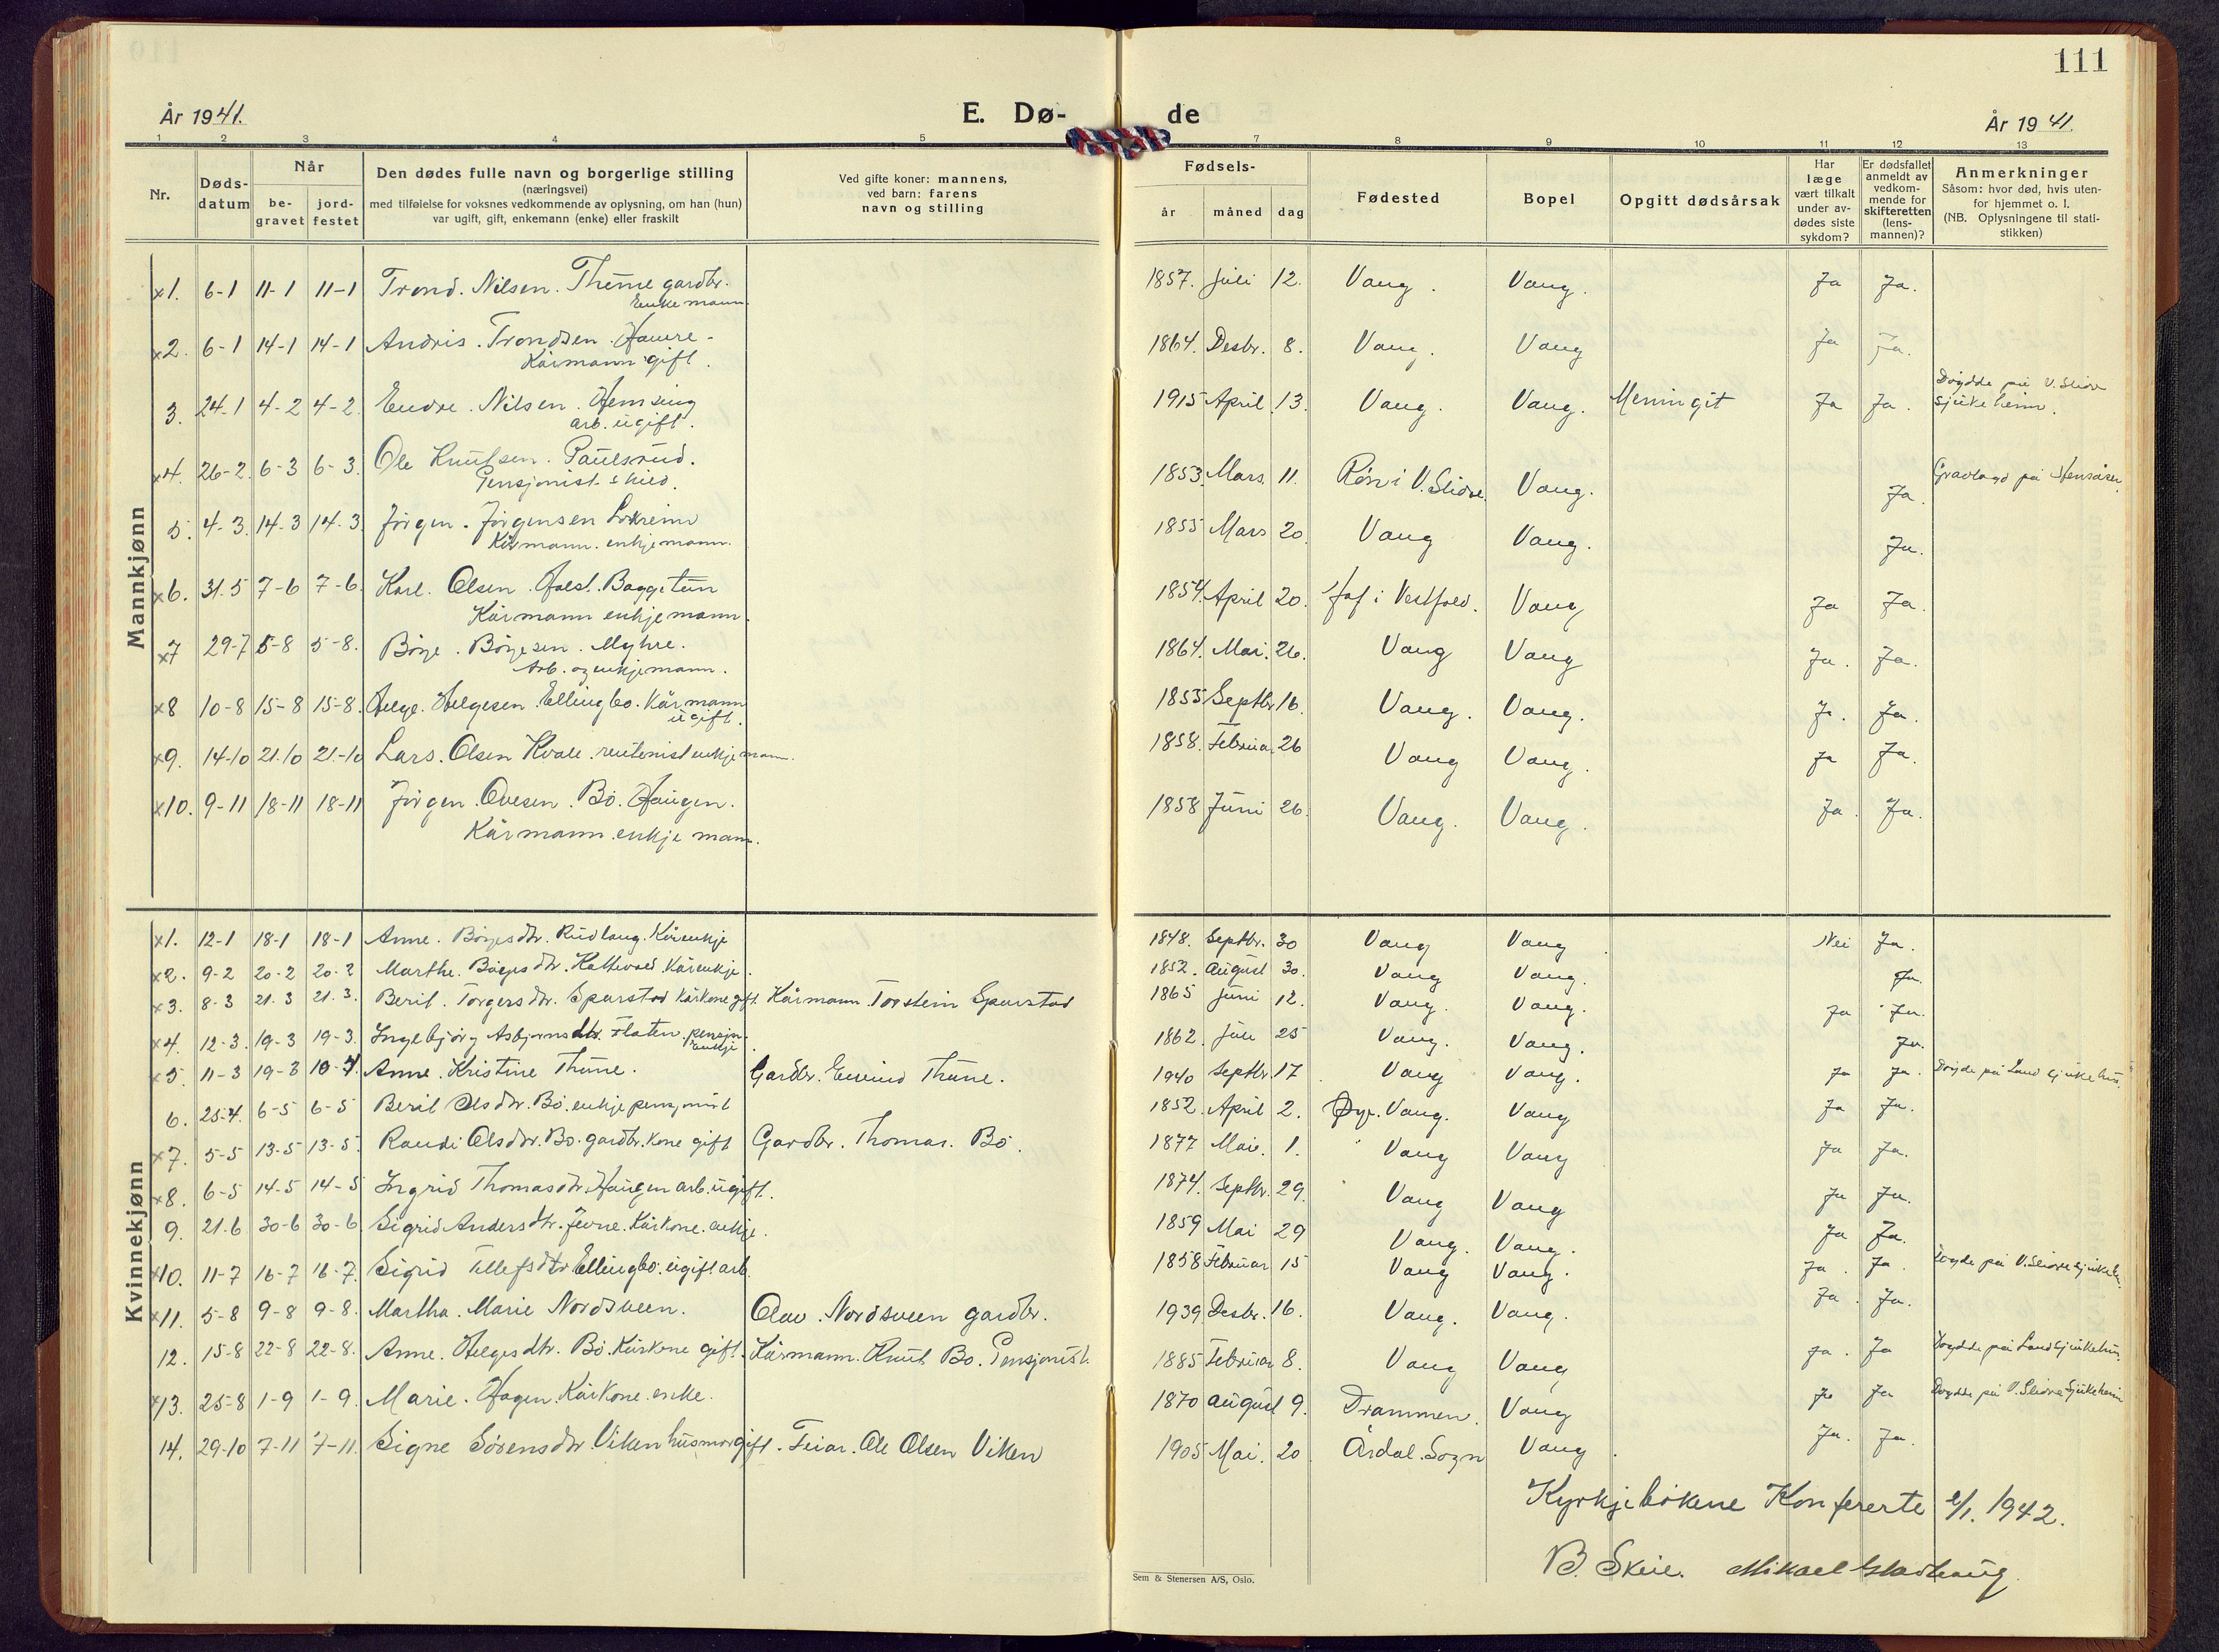 111
År 1941.
E. Dø-
de
År 1941.
1 2 3 4 5
7 8 9 10 11 12 13
Nr.
Døds-
datum
Når
be-
gravet
jord-
festet
Den dødes fulle navn og borgerlige stilling
(næringsvei)
med tilføielse for voksnes vedkommende av oplysning, om han (hun)
var ugift, gift, enkemann (enke) eller fraskilt
Ved gifte koner: mannens,
ved barn: farens
navn og stilling
Fødsels-
år måned dag
Fødested
Bopel
Opgitt dødsårsak
Har
læge
vært tilkalt
under av-
dødes siste
sykdom?
Er dødsfallet
anmeldt av
vedkom-
mende for
skifteretten
(lens-
mannen)?
Anmerkninger
Såsom: hvor død, hvis uten-
for hjemmet o. l.
(NB. Oplysningene til stati-
stikken)
Mannkjønn
x1. 6-1 11-1 11-1 Trond. Nilsen. Thune gardbr. 1857. Juli 12. Vang. Vang. Ja Ja.
Enkemann
x2. 6-1 14-1 14-1 Andris. Trondsen. Haure. 1864. Desbr. 8. Vang. Vang Ja Ja.
Kårmann gift.
3. 24-1 4-2 4-2 Endre. Nilsen. Hemsing 1915 April 13. Vang. Vang. Meningit Ja Ja. Døydde på V. Slidre
arb. ugift. sjukeheim.
x4. 26-2 6-3 6-3. Ole Knutsen. Paulsrud. 1853. Mars. 11. Røn i V. Slidre. Vang. Ja. Gravlagd på Stensåsen.
Pensjonist skild.
5. 4-3. 14-3 14-3. Jörgen. Jörgensen Lokreim 1855 Mars 20. Vang Vang. Ja.
Kårmann. enkjemann.
x6. 31.5 7-6 7-6. Karl. Olsen. Holst. Baggetun 1854. April 20. Hof i Vestfold. Vang Ja Ja.
Kårmann enkjemann.
x7 29-7 5-8 5-8. Börge. Börgesen. Myhre. 1864. Mai. 26. Vang Vang Ja. Ja.
Arb. og enkjemann.
x8 10-8 15-8 15-8. Helge. Helgesen. Ellingbo. Kårmann 1855 Septbr. 16. Vang. Vang. Ja. Ja.
ugift.
x9. 14-10 21.10 21-10 Lars. Olsen Kvale. rentenist enkjemann. 1858. Februar 26 Vang Vang. Ja Ja.
x10. 9-11 18-11 18-11 Jörgen. Ovesen. Bö. Haugen. 1858 Juni 26. Vang. Vang. Ja. Ja.
Kårmann. enkjemann.
Kvinnekjønn
x1. 12-1 18-1 18-1 Anne. Börgesdtr. Rudlang. Kårenkje 1848. Septbr. 30 Vang Vang Nei Ja.
x2. 9-2 20-2 20-2 Marthe. Börgesdtr. Kattevold. Kårenkje. 1852. August 30. Vang Vang. Ja.
x3. 8-3 21.3 21.3. Berit. Torgersdtr. Sparstad Kårkone gift. Kårmann. Torstein Sparstad 1865 Juni 12. Vang. Vang. Ja Ja.
x4. 12-3. 19-3 19-3. Ingebjörg Asbjørnsdtr. Flaten. pensjn. 1862. Juli 25 Vang. Vang. Ja.
Enkje
x5. 11-3 19-3 19-4. Anne. Kristine Thune. Gardbr. Eivind Thune. 1940 Septbr. 17 Vang Vang. Ja Ja. Döyde på Land sjukehus.
6. 25-4. 6-5 6-5 Berit Olsdtr. Bö. enkje pensjonist 1852. April 2. Øye. Vang. Vang Ja Ja.
x7. 5-5 13-5 13-5. Randi Olsdtr. Bö. gardbr. kone gift Gardbr. Thomas. Bö. 1877 Mai. 1. Vang Vang Ja Ja.
x8. 6-5 14-5 14-5 Ingrid Thomasdtr. Haugen arb. ugift. 1874. Septbr. 29. Vang Vang Ja Ja.
9. 21-6 30-6 30-6 Sigrid Andersdtr. Jevne. Kårkone. enkje. 1859 Mai 29 Vang. Vang. Ja Ja.
x10. 11-7 16-7 16-7. Sigrid Tellefsdtr Ellingbo. ugift arb. 1858 Februar 15 Vang Vang. Ja. Ja. Döyde på V. Slidre sjukeh.
x11. 5-8 9-8 9-8. Martha. Marie Nordsveen. Olav. Nordsveen gardbr. 1939 Desbr. 16. Vang. Vang. Ja. Ja.
12. 15-8 22-8 22-8. Anne. Helgesdtr. Bö. Kårkone gift. Kårmann. Knut Bö. Pensjonist. 1885 Februar 8. Vang Vang Ja. Ja Döydde på Land sjukehus.
x13. 25-8 1-9 1-9. Marie. Hagen. Kårkone. enke. 1870 August 9. Drammen. Vang Ja Ja Döydde på V. Slidre Sjukeheim
14. 29-10 7-11 7-11. Signe Sörensdtr. Viken husmor gift. Feiar. Ole Olsen Viken 1905 Mai. 20 Årdal. Sogn Vang. Ja. Ja.
Kyrkjebökene Konfererte 2/1. 1942.
B. Skeie. Mikael Gladhaug.
Sem & Stenersen A/S, Oslo.